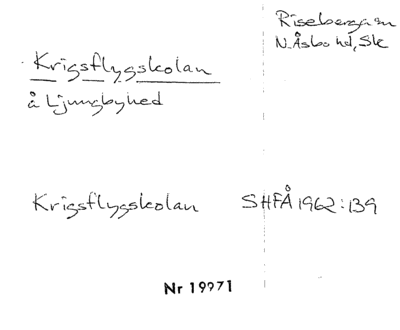 Riseberga sn
N. Åsbo hd, Sk
Krigsflygskolan
å Ljungbyhed
Krigsflygskolan SHFÅ 1962:139
Nr 19971